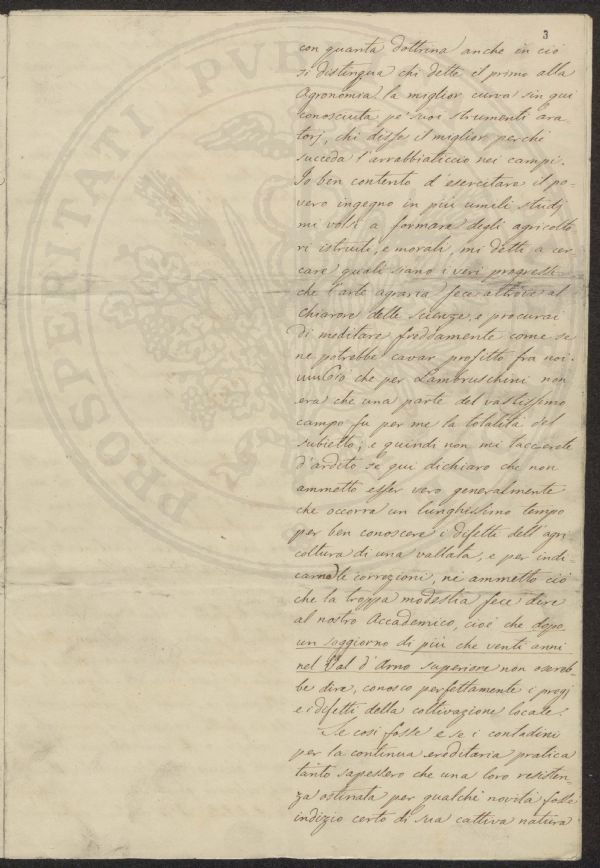 3
con quanta dottrina anche in ciò
si distingua chi dette il primo alla
Agronomia la miglior curva sin qui
conosciuta pe' suoi strumenti ara-
torj, chi disse il miglior perchè
succeda l'arrabbiaticcio nei campi.
Io ben contento d'esercitare il po-
vero ingegno in più umili studj
mi volsi a formare degli agricolto
ri istruiti, e morali, mi detti a cer
care quali siano i veri progressi
che l'arte agraria fece altrove al
chiarore delle scienze, e procurai
di meditare freddamente come se
ne potrebbe cavar profitto fra noi.
Ciò che per Lambruschini non
era che una parte del vastissimo
campo fu per me la totalità del
subietto, e quindi non mi taccerete
d'ardito se qui dichiaro che non
ammetto esser vero generalmente
che occorra un lunghissimo tempo
per ben conoscere i difetti dell'agri
coltura di una vallata, e per indi-
carne le correzioni, nè ammetto ciò
che la troppa modestia fece dire
al nostro Accademico, cioè che dopo
un soggiorno di più che venti anni
nel Val d'Arno superiore non osereb-
be dire, conosco perfettamente i pregj
e i difetti della coltivazione locale.
Se così fosse e se i contadini
per la continua ereditaria pratica
tanto sapessero che una loro resisten-
za ostinata per qualche novità fosse
indizio certo di sua cattiva natura
PROSPERITATI PVBL